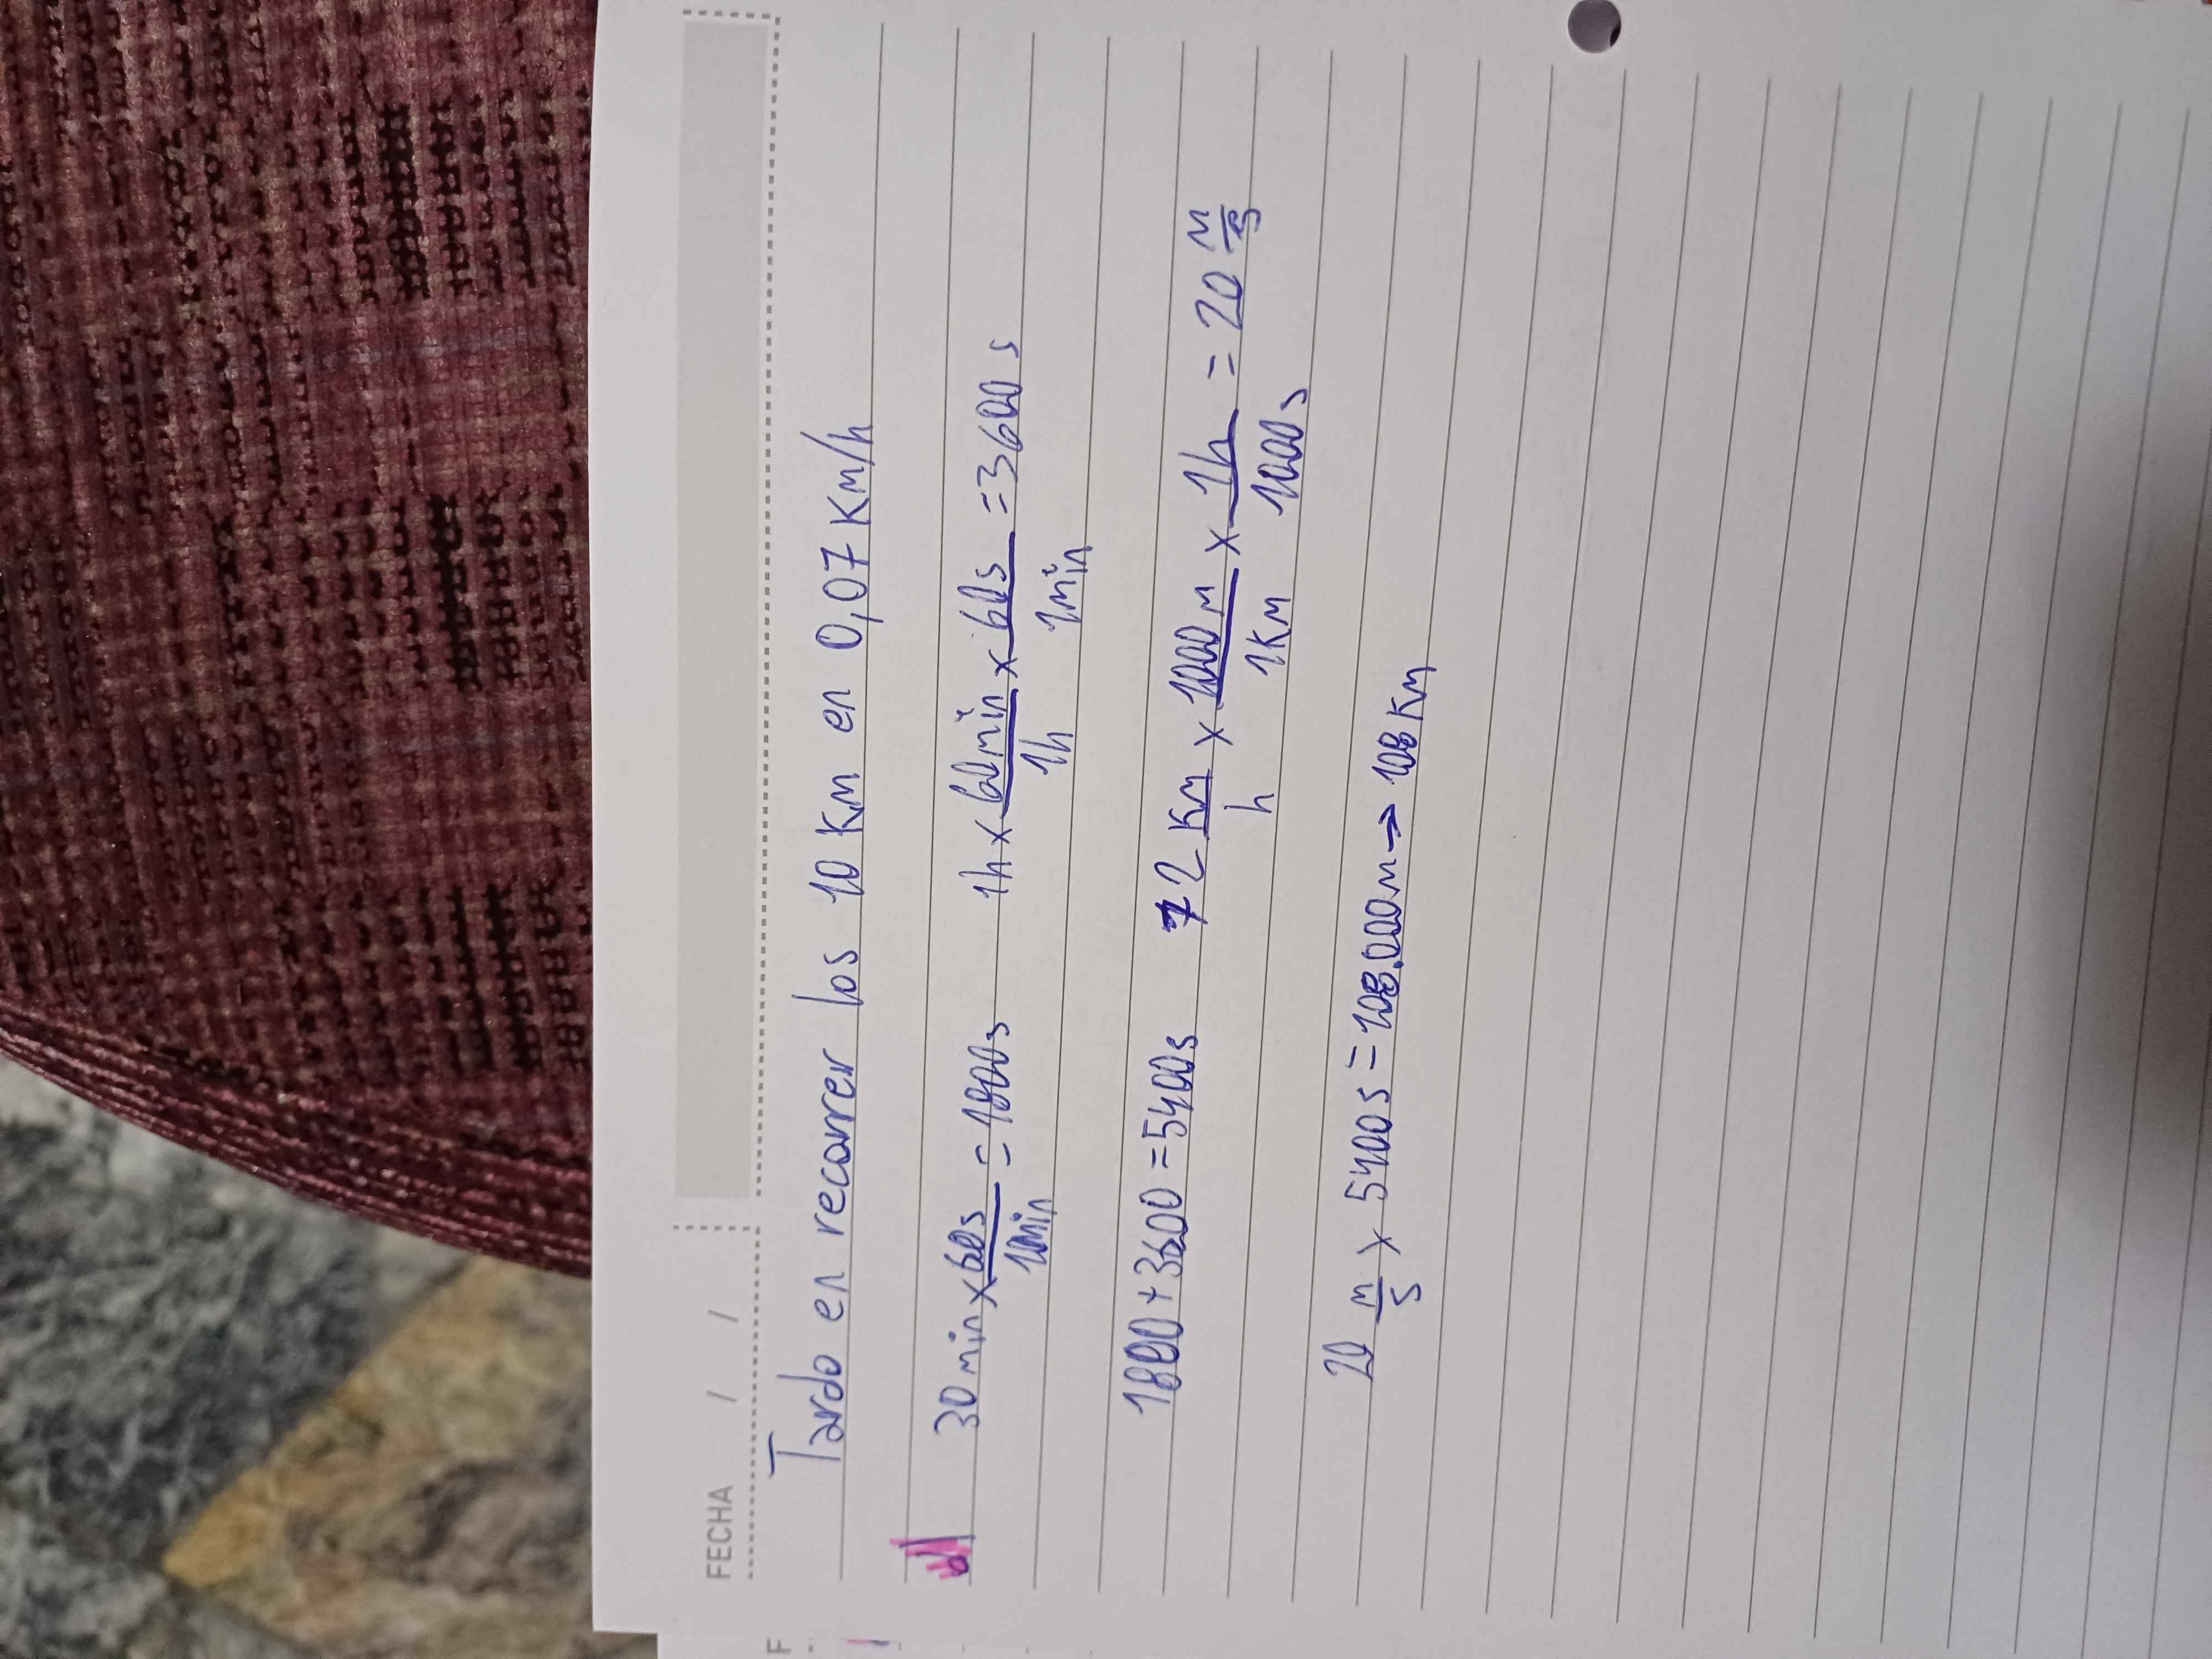 FECHA / /
Tardo en recorrer los 10 Km en 0,07 Km/h
b) 30 min x 60s / 1min = 1800s 1h x 60min / 1h x 60s / 1min = 3600 s
1800 + 3600 = 5400s 72 Km / h x 1000 m / 1 Km x 1h / 1000 s = 20 m / s
20 m / s x 5400 s = 108.000m → 108 Km
F